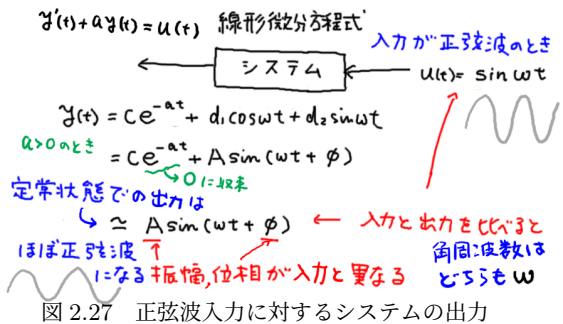 y'(t)+ay(t)=u(t) 線形微分方程式
入力が正弦波のとき
システム
u(t)= sinωt
y(t)=ce^{-at}+d₁cosωt+d₂sinωt
a>0のとき
=ce^{-at}+Asin(ωt+φ)
0に収束
定常状態での出力は
≃ Asin(ωt+φ) ← 入力と出力を比べると
ほぼ正弦波になる
振幅,位相が入力と異なる
角周波数はどちらもω
図 2.27 正弦波入力に対するシステムの出力